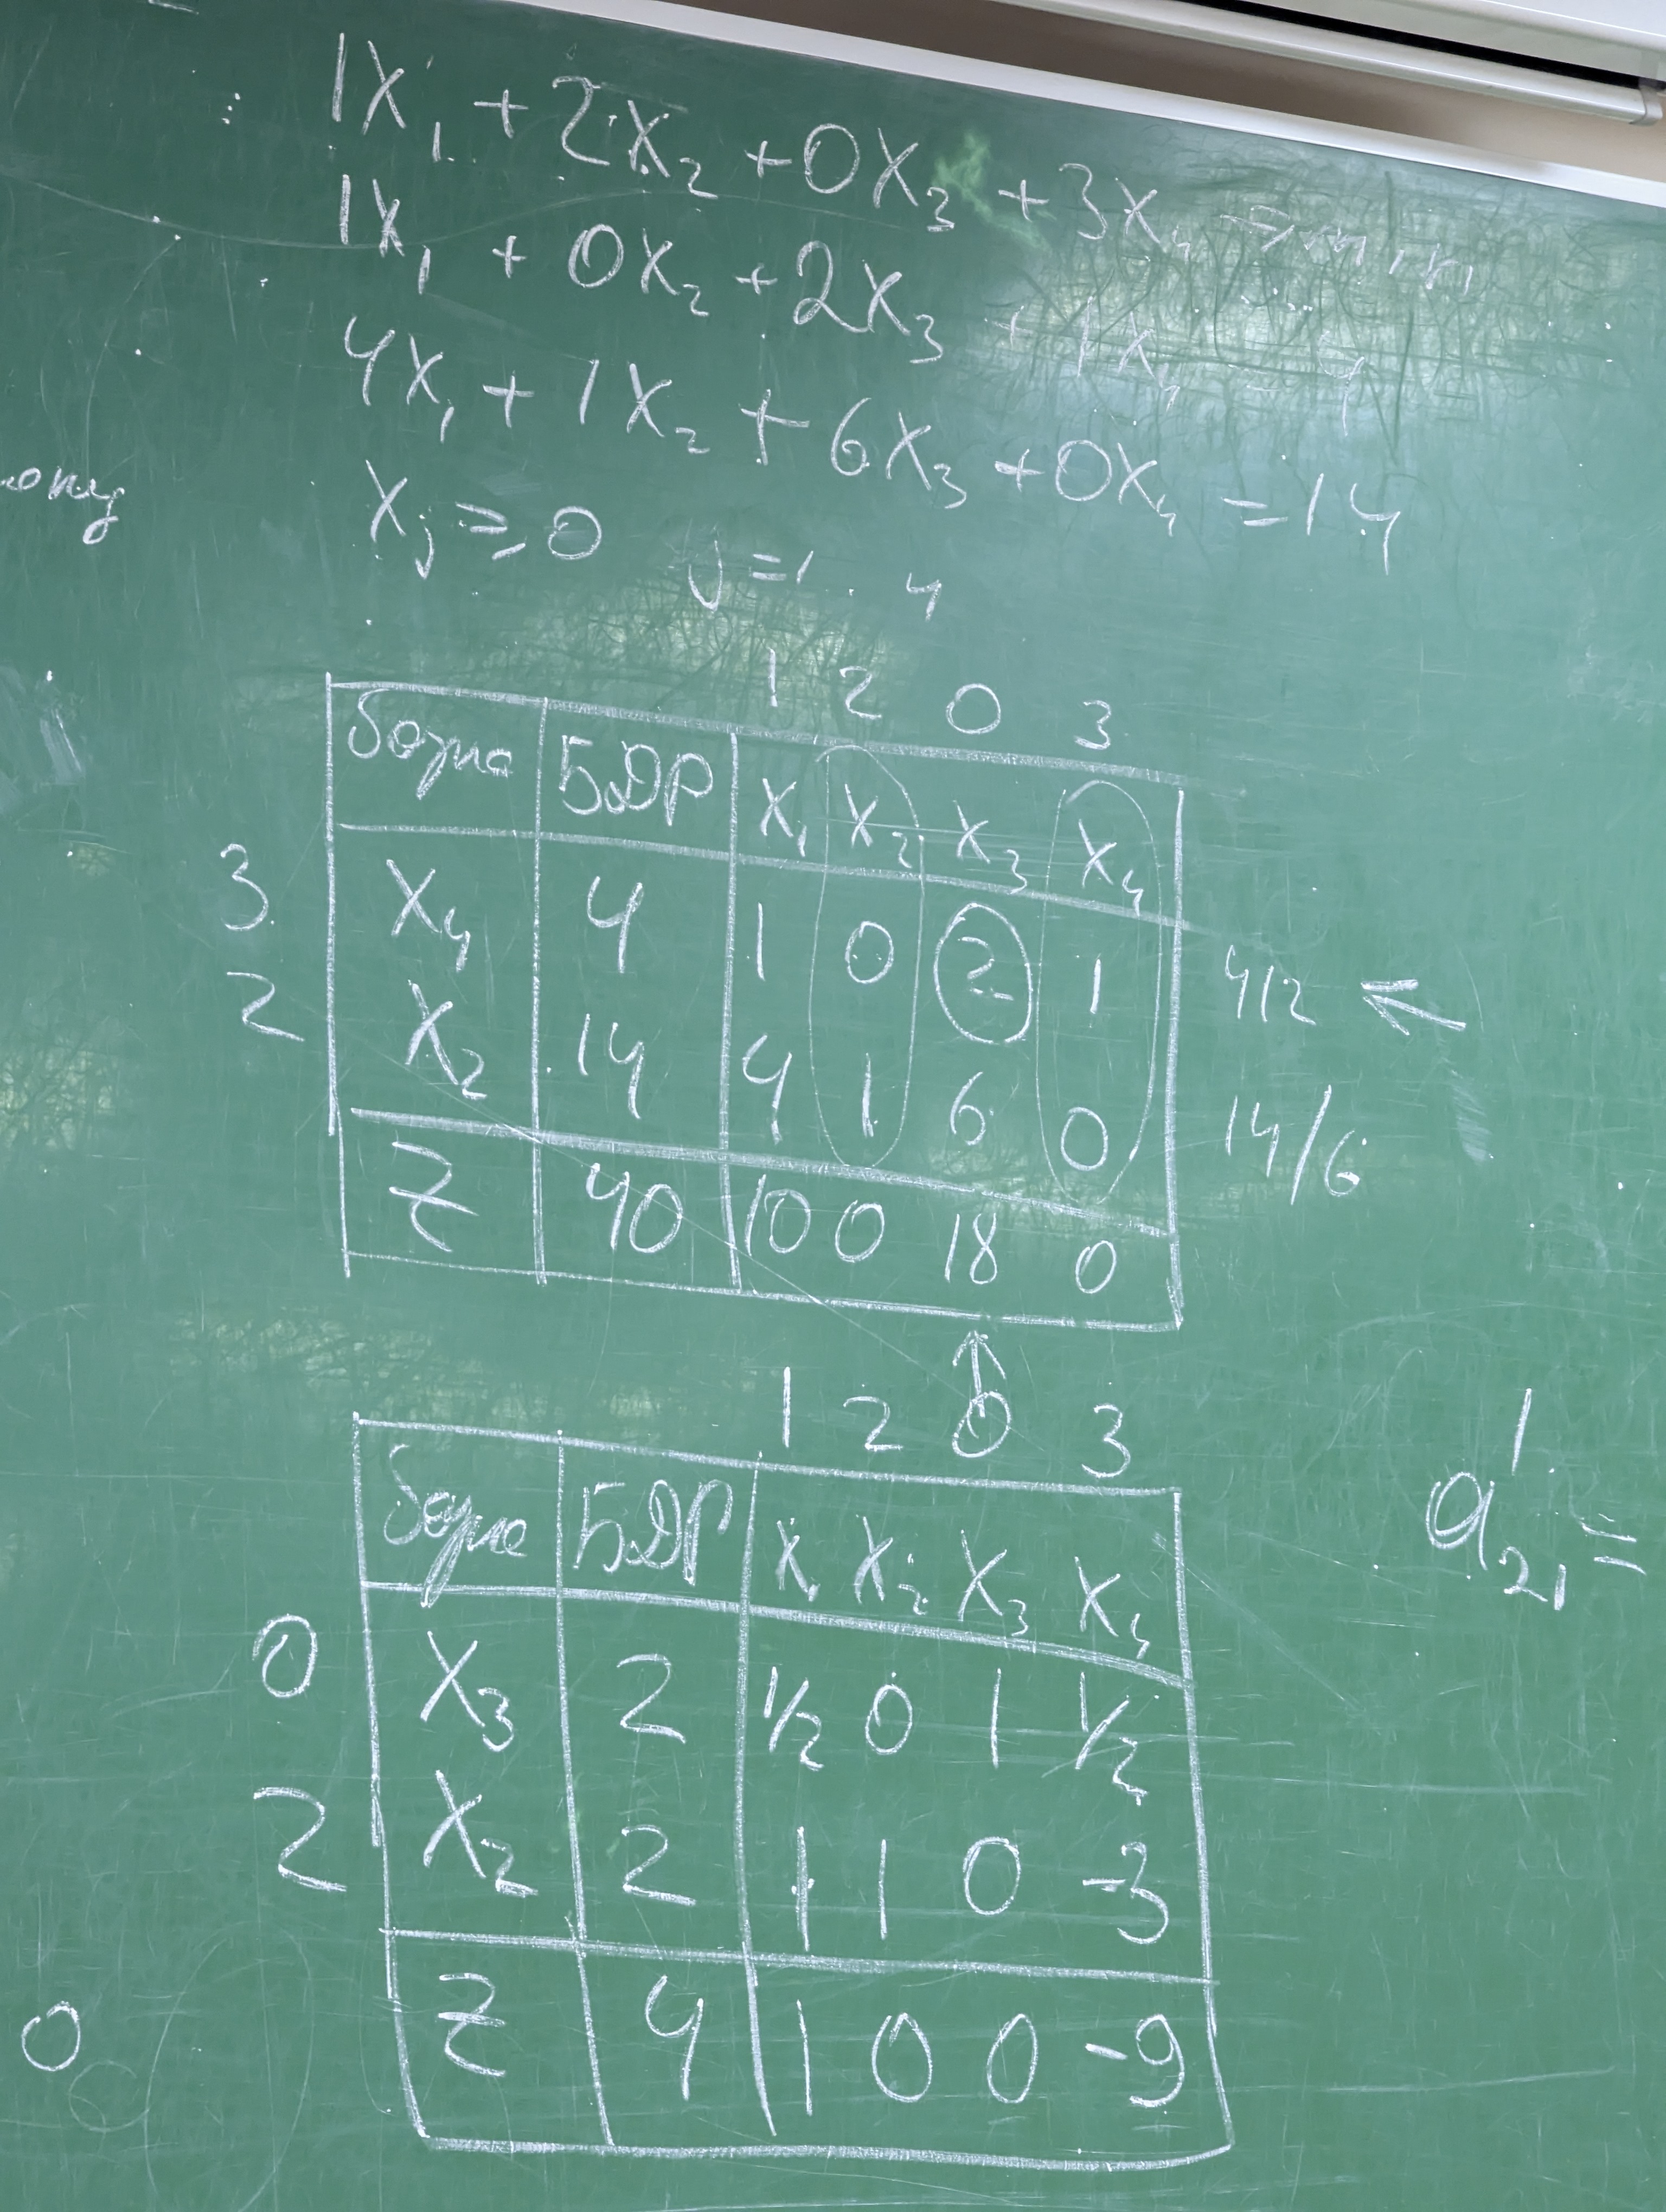 1x₁ + 2x₂ + 0x₃ + 3x₄ → min
1x₁ + 0x₂ + 2x₃ + 1x₄ = 4
4x₁ + 1x₂ + 6x₃ + 0x₄ = 14
xⱼ ≥ 0 j = 1..4
1 2 0 3
БДР x₁ x₂ x₃ x₄
3 x₄ 4 1 0 2 1 4/2 ←
2 x₂ 14 4 1 6 0 14/6
Z 40 10 0 18 0
↑
1 2 0 3
БДР x₁ x₂ x₃ x₄
0 x₃ 2 1/2 0 1 1/2
2 x₂ 2 1 1 0 -3
Z 4 1 0 0 -9
a¹₂₁ =
0